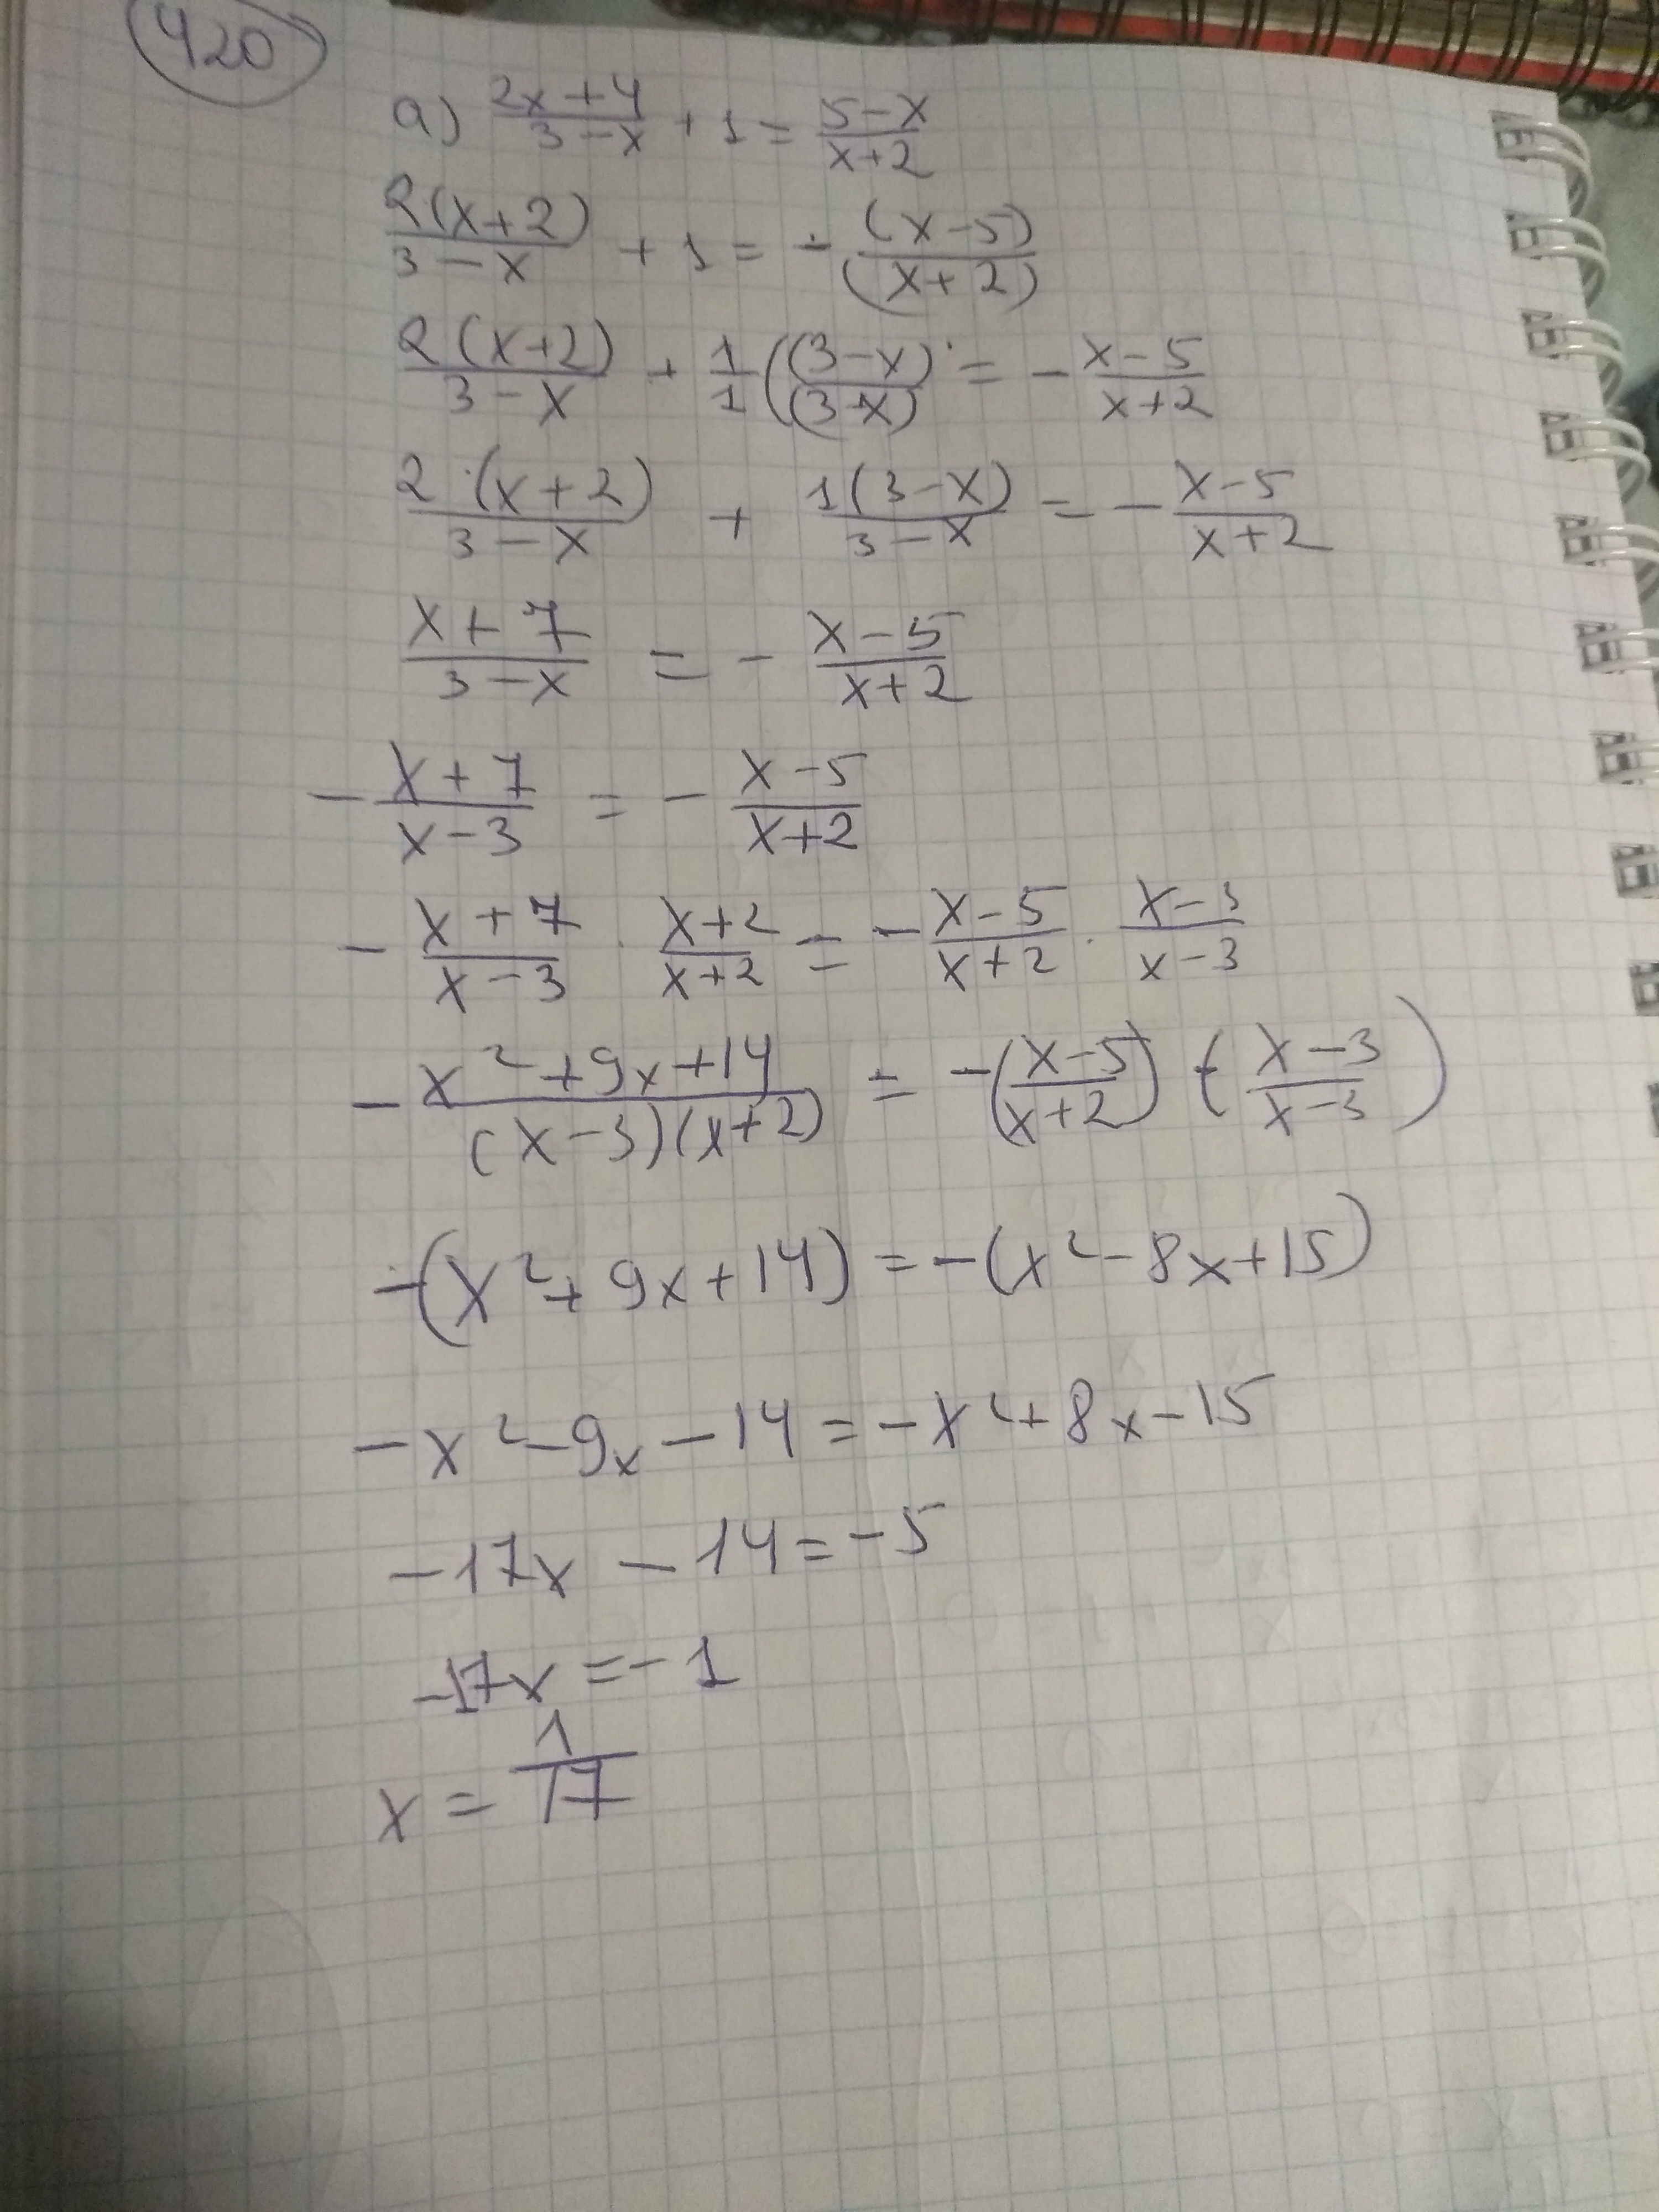 420
a) (2x+4)/(3-x) + 1 = (5-x)/(x+2)
2(x+2)/(3-x) + 1 = - (x-5)/(x+2)
2(x+2)/(3-x) + 1/1 ((3-x)/(3-x)) = - (x-5)/(x+2)
2·(x+2)/(3-x) + 1(3-x)/(3-x) = - (x-5)/(x+2)
(x+7)/(3-x) = - (x-5)/(x+2)
- (x+7)/(x-3) = - (x-5)/(x+2)
- (x+7)/(x-3) · (x+2)/(x+2) = - (x-5)/(x+2) · (x-3)/(x-3)
- (x²+9x+14)/((x-3)(x+2)) = -((x-5)/(x+2)) ((x-3)/(x-3))
-(x²+9x+14) = -(x²-8x+15)
-x²-9x-14 = -x²+8x-15
-17x-14 = -5
-17x = -1
x = 1/17